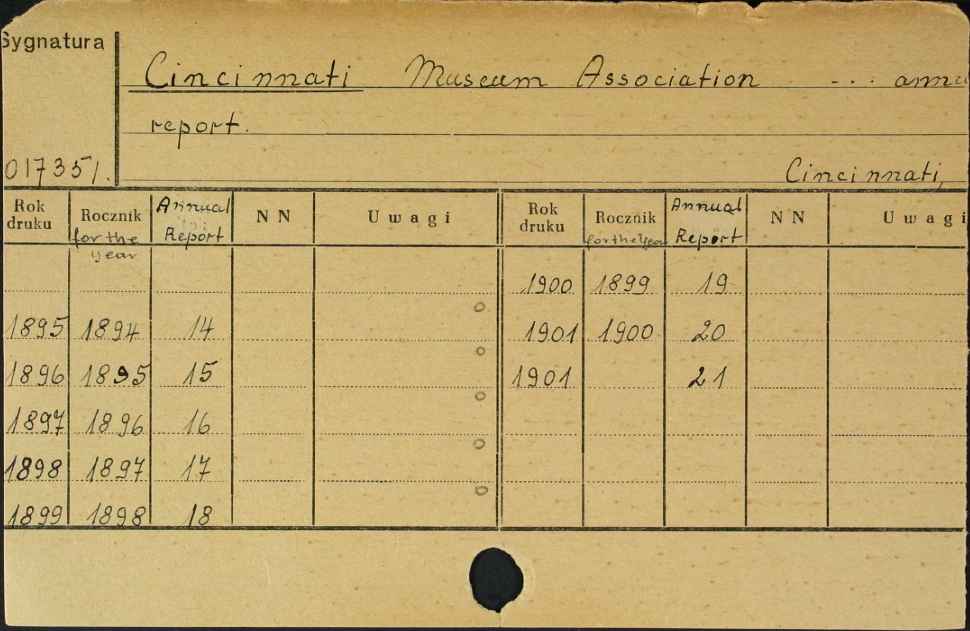 Sygnatura
Cincinnati Museum Association --- annu
report.
017351.
Cincinnati,
Rok druku Rocznik for the year Annual Report NN Uwagi Rok druku Rocznik for the year Annual Report NN Uwagi
1900 1899 19
1895 1894 14 1901 1900 20
1896 1895 15 1901 21
1897 1896 16
1898 1897 17
1899 1898 18